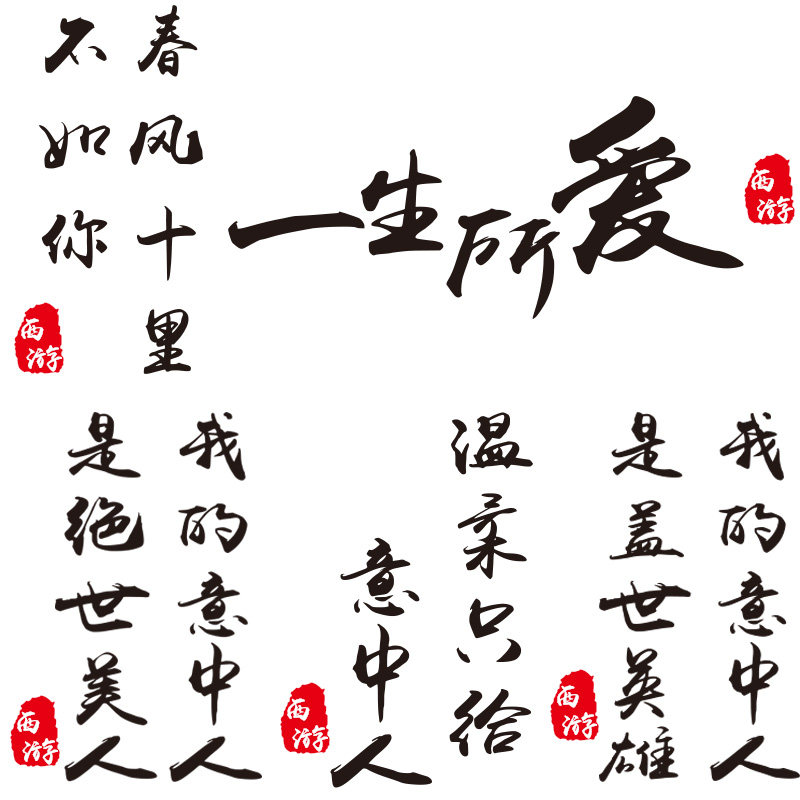 春风十里
不如你
西游
一生所爱
西游
我的意中人
是盖世英雄
西游
温柔只给
意中人
西游
我的意中人
是绝世美人
西游